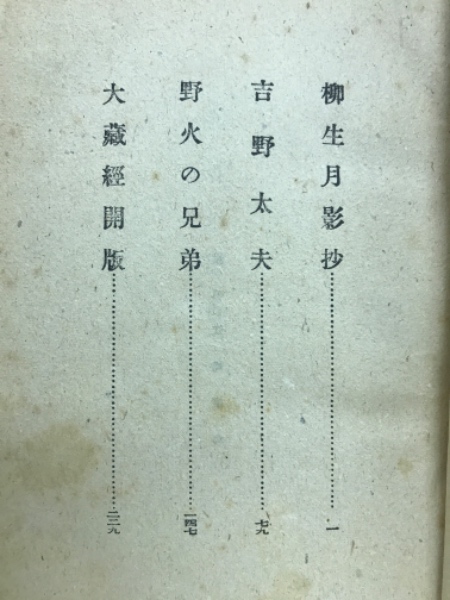 柳生月影抄……………………一
吉野太夫……………………七九
野火の兄弟……………………一四七
大藏經開版……………………二三九